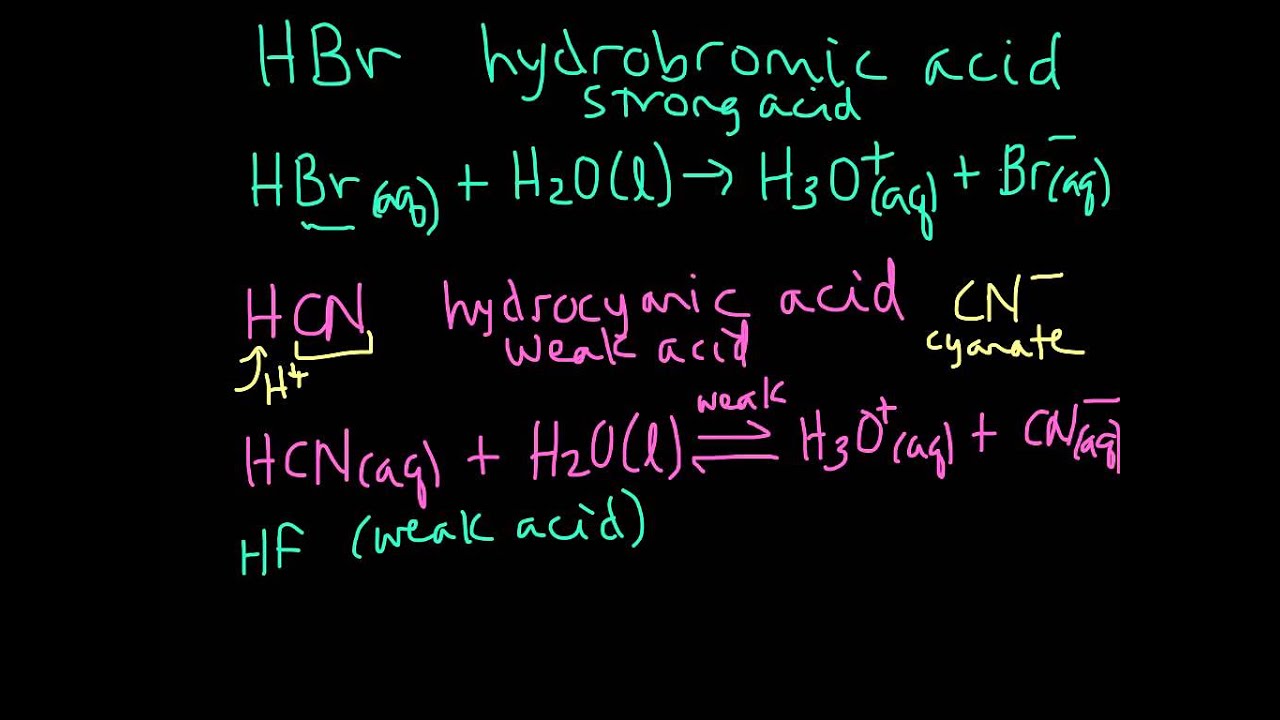 HBr hydrobromic acid
strong acid
HBr(aq) + H2O(l) → H3O+(aq) + Br−(aq)
HCN hydrocyanic acid CN−
weak acid cyanate
H+
weak
HCN(aq) + H2O(l) ⇌ H3O+(aq) + CN−(aq)
HF (weak acid)